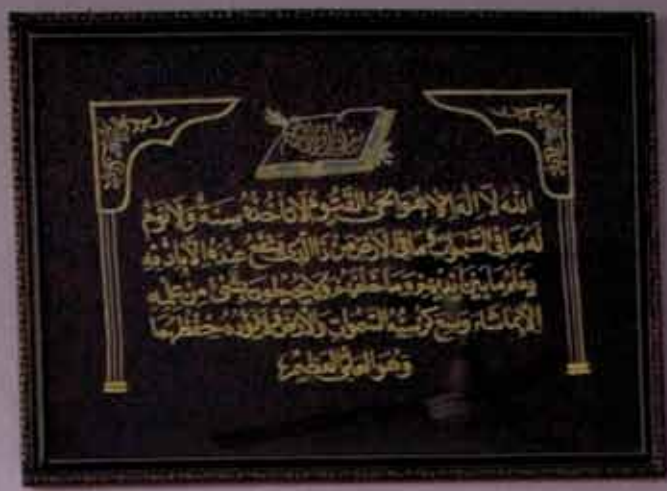 بسم الله الرحمن الرحيم
الله لا اله الا هو الحي القيوم لا تأخذه سنة ولا نوم
له ما في السموات وما في الارض من ذا الذي يشفع عنده الا باذنه
يعلم ما بين ايديهم وما خلفهم ولا يحيطون بشيء من علمه
الا بما شاء وسع كرسيه السموات والارض ولا يؤده حفظهما
وهو العلي العظيم